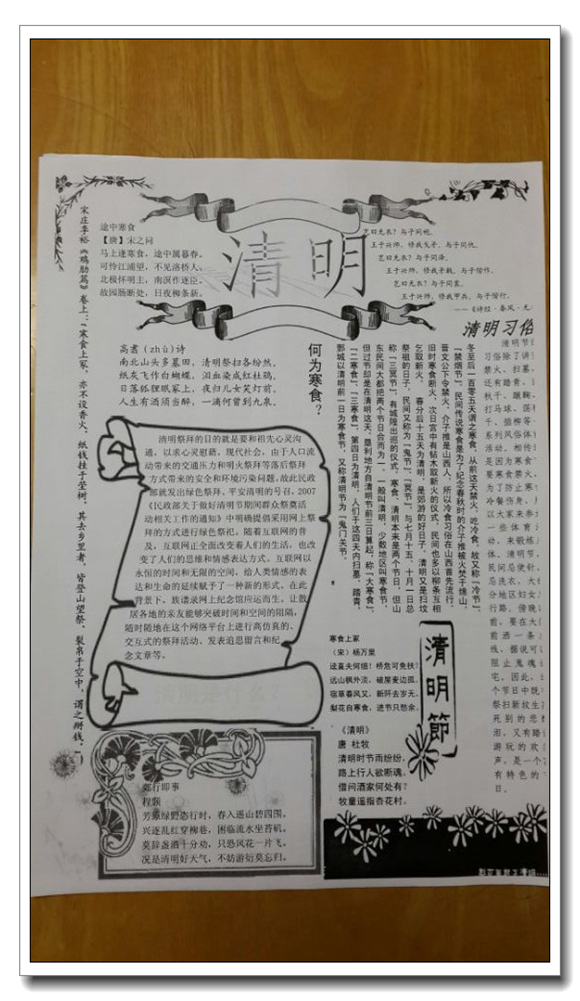 宋庄李裕《鸡肋篇》卷上:“寒食上冢,亦不设香火。纸钱挂于茔树。其去乡里者,皆登山望祭。裂帛于空中,谓之掰钱。)
途中寒食
【唐】宋之问
马上逢寒食,途中属暮春。
可怜江浦望,不见洛桥人。
北极怀明主,南溟作逐臣。
故园肠断处,日夜柳条新。
清明
岂曰无衣?与子同袍。
王于兴师,修我戈矛。与子同仇。
岂曰无衣?与子同泽。
王于兴师,修我矛戟。与子偕作。
岂曰无衣?与子同裳。
王于兴师,修我甲兵。与子偕行。
高翥(zhù)诗
南北山头多墓田,清明祭扫各纷然。
纸灰飞作白蝴蝶,泪血染成红杜鹃。
日落狐狸眠冢上,夜归儿女笑灯前。
人生有酒须当醉,一滴何曾到九泉。
清明祭拜的目的就是要和祖先心灵沟
通,以求心灵慰藉。现代社会,由于人口流
动带来的交通压力和明火祭拜等落后祭拜
方式带来的安全和环境污染问题,故此民政
部就发出绿色祭拜,平安清明的号召。2007
《民政部关于做好清明节期间群众祭奠活
动相关工作的通知》中明确提倡采用网上祭
拜的方式进行绿色祭祀。随着互联网的普
及,互联网正全面改变着人们的生活,也改
变了人们的思维和情感表达方式。互联网以
永恒的时间和无限的空间,给人类情感的表
达和生命的延续赋予了一种新的形式。在此
背景下,族谱录网上纪念馆应运而生,让散
居各地的亲友能够突破时间和空间的阻隔,
随时随地在这个网络平台上进行高仿真的、
交互式的祭拜活动、发表追思留言和纪
念文章等。
何为寒食?
冬至后一百零五天谓之寒食,从前这天禁火,吃冷食。故又称“冷节”、
“禁烟节”。民间传说寒食是为了纪念春秋时的介子推被火焚于绵山,
晋文公下令禁火。介子推是山西人,所以冷食习俗在山西首先流行。
旧时寒食断火,次日宫中有钻木取新火的仪式,民间也多以柳条互相
乞取新火。春分后十五天为清明,是郊游的好日子。清明又是扫坟
祭祖的日子,民间又称为“鬼节”、“冥节”,与七月十五、十月一日总
称“三冥节”,有城隍出巡的仪式。寒食、清明本来是两个节日,但山
东民间大都把两个节日合而为一,一般叫清明,少数地区叫寒食节,
但过节却是在清明这天。垦利地方自清明节前三日算起,称“大寒食”、
“二寒食”、“三寒食”,第四日为清明,人们于这四天内扫墓、踏青。
鄄城以清明前一日为寒食节,又称清明节为“鬼门关节。
清明习俗
寒食上冢
(宋)杨万里
迳直夫何细!桥危可免扶?
远山枫外淡,破屋麦边孤。
宿草春风又,新阡去岁无。
梨花自寒食,进节只愁余。
《清明》
唐 杜牧
清明时节雨纷纷,
路上行人欲断魂。
借问酒家何处有?
牧童遥指杏花村。
清明節
郊行即事
程颢
芳原绿野恣行时,春入遥山碧四围。
兴逐乱红穿柳巷,困临流水坐苔矶。
莫辞盏酒十分劝,只恐风花一片飞。
况是清明好天气,不妨游衍莫忘归。